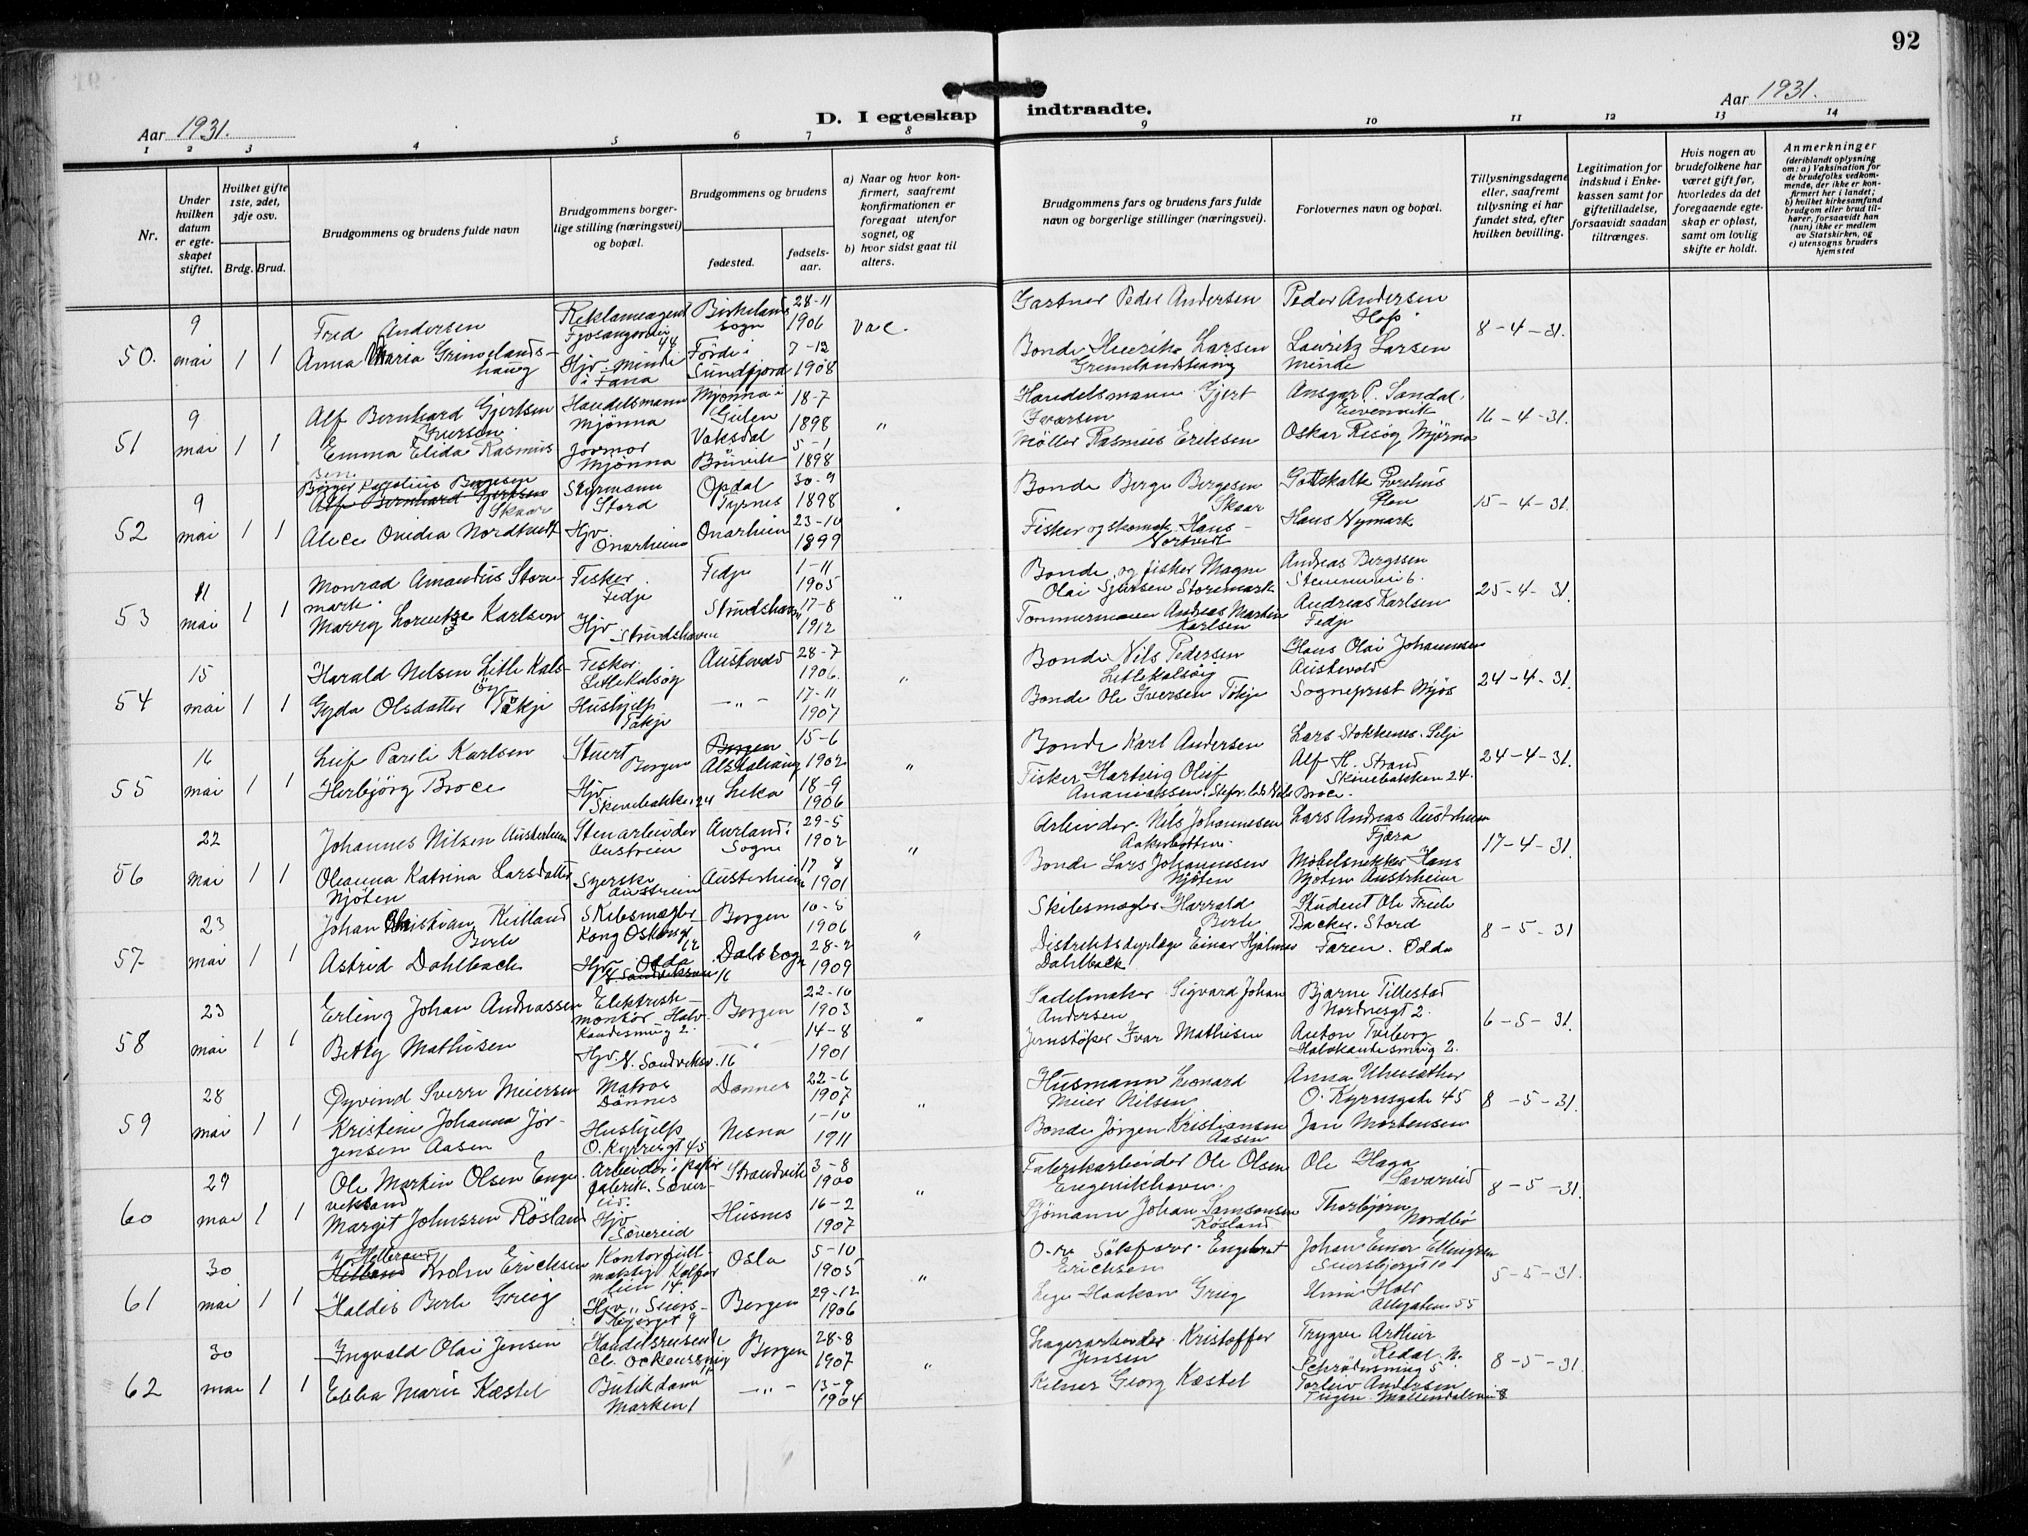 92
Aar 1931.
D. I egteskap indtraadte.
Aar 1931.
1 2 3 4 5 6 7 8 9 10 11 12 13 14
Nr.
Under hvilken datum er egteskapet stiftet.
Hvilket gifte 1ste, 2det, 3dje osv.
Brdg. Brud.
Brudgommens og brudens fulde navn
Brudgommens borgerlige stilling (næringsvei) og bopæl.
Brudgommens og brudens
fødested.
fødselsaar.
a) Naar og hvor konfirmert, saafremt konfirmationen er foregaat utenfor sognet, og
b) hvor sidst gaat til alters.
Brudgommens fars og brudens fars fulde navn og borgerlige stillinger (næringsvei).
Forlovernes navn og bopæl.
Tillysningsdagene eller, saafremt tillysning ei har fundet sted, efter hvilken bevilling.
Legitimation for indskud i Enkekassen samt for giftetilladelse, forsaavidt saadan tiltrænges.
Hvis nogen av brudefolkene har været gift før, hvorledes da det foregaaende egteskap er opløst, samt om lovlig skifte er holdt.
Anmerkninger
(deriblandt oplysning om: a) Vaksination for de brudefolks vedkommende, der ikke er konfirmert her i landet; b) hvilket kirkesamfund brudgom eller brud tilhører, forsaavidt han (hun) ikke er medlem av Statskirken, og c) utensogns bruders hjemsted
50. 9 mai 1 1
Fred Andersen
Anna Maria Grimelandshaug
Reklameagent Fjøsangerveien 44
Hjv. Minde i Fana
Birkeland sogn 28-11 1906
Førde i Sundfjord 7-12 1908
vac.
Gartner Peder Andersen
Bonde Henrik Larsen Grimelandshaug
Peder Andersen Hop
Lauritz Larsen Minde
8-4-31.
51 9 mai 1 1
Alf Bernhard Gjertsen Iversen
Emma Elida Rasmussen
Handelsmann Mjømna
Jormor Mjømna
Mjømna i Gulen 18-7 1898
Vaksdal Bruvik 5-1 1898
"
Handelsmann Gjert Iversen
Møller Rasmus Eriksen
Ansgar P. Sandal. Eivenvik
Oskar Risøy Mjømna
16-4-31.
52 9 mai 1 1
Børge Karolius Børgesen Skaar
Alf Bernhard Gjertsen
Alice Ovidia Nordtveit
Styrmann Stord
Hjv. Onarheim
Opdal Tysnes 30-9 1898
Onarheim 23-10 1899
Bonde Berge Bergesen Skaar
Fisker og skomak. Hans Nortveit
Hans Nymark
15-4-31.
53 11 mai 1 1
Monrad Amandus Storemark.
Marry Lorentze Karlsen
Fisker Fedje
Hjv Strudshavn
Fedje 1-11 1905
Strudshavn 17-8 1912
"
Bonde og fisker Magne Olai Sjursen Storemark
Tømmermann Andreas Martin Karlsen
Andreas Bergesen
Andreas Karlsen Fedje
25-4-31.
54 15 mai 1 1
Harald Nilsen Litle Kalsøy
Gyda Olsdatter Tøkje
Fisker Litlekalsøy
Hushjelp Tøkje
Austevold 28-7 1906.
-"- 17-11 1907
"
Bonde Nils Pedersen Litlekalsøy
Bonde Ole Iversen Tøkje
Hans Olai Johannesen Austevold
Sogneprest Mjøs
24-4-31.
55 16 mai 1 1
Leif Pareli Karlsen
Herbjørg Broce
Stuert Bergen
Hjv. Skivebakken 24
Bergen Alstahaug 15-6 1902
Leka 18-9 1906
"
Bonde Karl Andersen
Fisker Hartvig Oluf Ananiassen. Broce.
Lars Stokkenes. Selje
Alf H. Strand Skivebakken 24.
24-4-31.
56 22 mai 1 1
Johannes Nilsen Austerheim
Oleanna Katrina Larsdatter Njøten
Stenarbeider Austreim
Syerske Austreim
Aurland i Sogn 29-5 1902
Austerheim 17-8 1901
"
Arbeider Nils Johannesen Aakerbotten.
Bonde Lars Johannesen Njøten
Lars Andreas Austrheim Fjæra
Møbelsnekker Hans Njøten Austrheim
17-4-31.
57 23 mai 1 1
Johan Christian Kielland Berle
Astrid Dahlback
Skibsmægler Kong Oskarsgt 62
Hjv Odda N. Sandviksvei 16
Bergen 10-8 1906
Dals sogn 28-2 1909
"
Skibsmægler Harrald Berle
Distriktsdyrlæge Einar Hjalmar Dahlback
Student Ole Friele Backer. Stord
Faren. Odda
8-5-31
58 23 mai 1 1
Erling Johan Andreassen
Betty Mathisen
Elektriskmontør Halvkandesmug 2.
Hjv. N. Sandviksv. 16
Bergen 22-10 1903
-"- 14-8 1901
"
Sadelmaker Sigvard Johan Andersen
Jernstøper Ivar Mathisen
Bjarne Tillestad Nordnesgt 2.
Anton Tviberg Halvkandesmug 2.
6-5-31.
59 28 mai 1 1
Øyvind Sverre Meiersen
Kristine Johanna Jørgensen Aasen
Matros Dønnes
Hushjelp O. Kyrresgt 45
Dønnes 22-6 1907
Nesna 1-10 1911
"
Husmann Leonard Meier Nilsen
Bonde Jørgen Kristiansen Aasen
O. Kyrresgate 45
Jan Mortensen
8-5-31.
60 29 mai 1 1
Ole Martin Olsen Engeviksand
Margit Johnsen Røsland
Arbeider i papirfabrik. Sævereid.
Hjv Sævereid
Strandvik 3-8 1900
Husnes 16-2 1907
"
Fabrikarbeider Ole Olsen Engevikhavn.
Sjømann Johan Samsonsen Røsland
Ole Haga Sævareid
Thorbjørn Nordbø
8-5-31.
61 30 mai 1 1
Krohn Ericksen
Haldis Berle Grieg
Kontorfullmektig Kalfarlien 14.
Oslo 5-10 1905
Bergen 29-12 1906
"
Engebret Ericksen
Lege Haakon Grieg
Johan Einar Ellingsen
Unni Holt Allegaten 55
5-5-31.
62 30 mai 1 1
Ingvald Olai Jensen
Ebba Marie Kæstel
Handelsreisende
Butikdame Marken 1
Bergen 28-8 1907
-"- 13-9 1904
"
Lagerarbeider Kristoffer Jensen
Kelner Georg Kæstel
Trygve Arthur Redal. N. Schrødersmug 5
Torleiv Andersen Møllendalsvei 8
8-5-31.